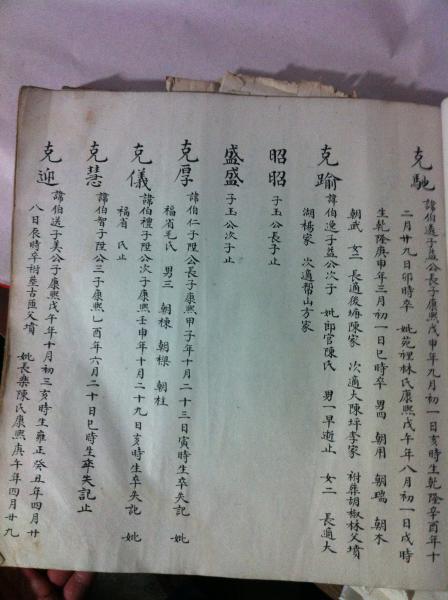 克馳 諱伯遠子益公長子康熙戊申年九月初一亥時生乾隆辛酉年十
二月廿九日卯時卒 妣苑裡林氏康熙戊午年八月初一日戌時
生乾隆庚申年三月初一日巳時卒 男四 朝用 朝瑞 朝木
朝武 女二 長適後塘陳家 次適大陳坪李家 祔葬胡椒林父墳
克踰 諱伯逵子益公次子 妣郎官陳氏 男一早逝止 女二 長適大
湖楊家 次適帮山方家
昭昭 子玉公長子止
盛盛 子玉公次子止
克厚 諱伯仁子陞公長子康熙甲子年十月二十三日寅時生卒失記 妣
福省毛氏 男三 朝棟 朝樑 朝柱
克儀 諱伯禮子陞公次子康熙壬申年十月二十九日亥時生卒失記 妣
福省 氏止
克慧 諱伯智子陞公三子康熙乙酉年六月二十日巳時生卒失記止
克迎 諱伯送子美公子康熙戊午年十月初三亥時生雍正癸丑年四月廿
八日辰時卒祔葬古匝父墳 妣長樂陳氏康熙庚午年四月廿九